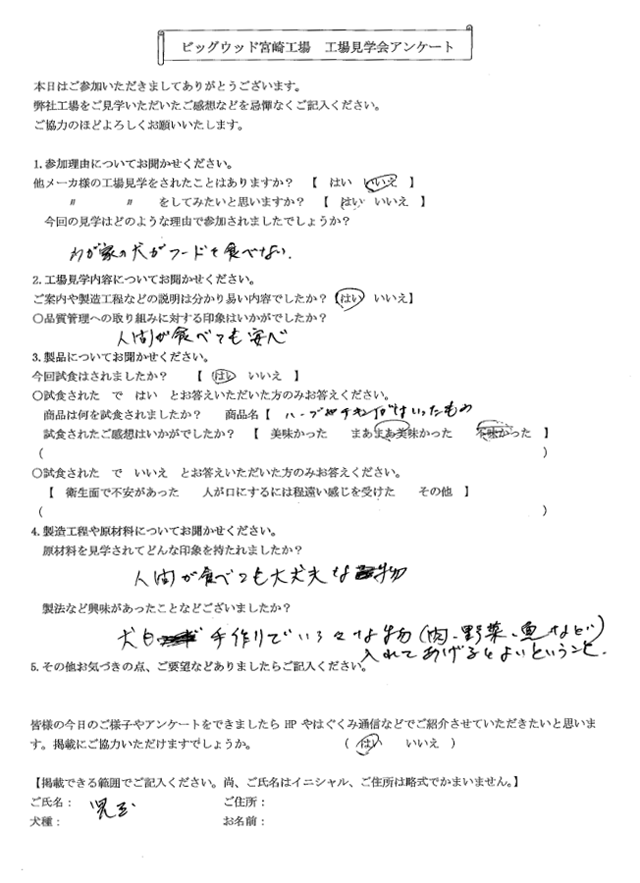 ビッグウッド宮崎工場　工場見学会アンケート
本日はご参加いただきましてありがとうございます。
弊社工場をご見学いただいたご感想などを忌憚なくご記入ください。
ご協力のほどよろしくお願いいたします。
1.参加理由についてお聞かせください。
他メーカ様の工場見学をされたことはありますか？　【　はい　いいえ　】
〃　　　〃　　をしてみたいと思いますか？　【　はい　いいえ　】
今回の見学はどのような理由で参加されましたでしょうか？
わが家の犬がフードを食べない.
2.工場見学内容についてお聞かせください。
ご案内や製造工程などの説明は分かり易い内容でしたか？【はい　いいえ】
〇品質管理への取り組みに対する印象はいかがでしたか？
人間が食べても安心
3.製品についてお聞かせください。
今回試食はされましたか？　【　はい　いいえ　】
〇試食された　で　はい　とお答えいただいた方のみお答えください。
商品は何を試食されましたか？　商品名【　ハーブやチキンがはいったもの
試食されたご感想はいかがでしたか？　【　美味かった　まあまあ美味かった　不味かった　】
（　　　）
〇試食された　で　いいえ　とお答えいただいた方のみお答えください。
【　衛生面で不安があった　人が口にするには程遠い感じを受けた　その他　】
（　　　）
4.製造工程や原材料についてお聞かせください。
原材料を見学されてどんな印象を持たれましたか？
人間が食べても大丈夫な物
製法など興味があったことなどございましたか？
手作りでいろ々な物(肉、野菜、魚など)
入れてあげるとよいということ.
5.その他お気づきの点、ご要望などありましたらご記入ください。
皆様の今日のご様子やアンケートをできましたら HP やはぐくみ通信などでご紹介させていただきたいと思いま
す。掲載にご協力いただけますでしょうか。　（　はい　いいえ　）
【掲載できる範囲でご記入ください。尚、ご氏名はイニシャル、ご住所は略式でかまいません。】
ご氏名：　児玉　ご住所：
犬種：　お名前：